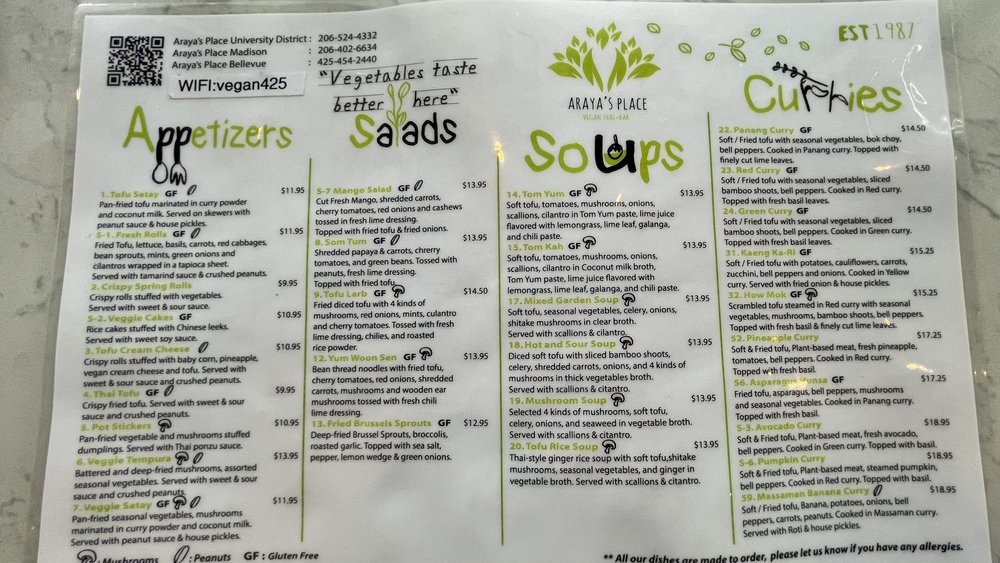 Araya's Place University District : 206-524-4332
Araya's Place Madison : 206-402-6634
Araya's Place Bellevue : 425-454-2440
WIFI:vegan425
"Vegetables taste
better here"
ARAYA'S PLACE
VEGAN THAI-BAR
EST 1987
Appetizers
1. Tofu Satay GF $11.95
Pan-fried tofu marinated in curry powder
and coconut milk. Served on skewers with
peanut sauce & house pickles.
S-1. Fresh Rolls GF $11.95
Fried Tofu, lettuce, basils, carrots, red cabbages,
bean sprouts, mints, green onions and
cilantros wrapped in a tapioca sheet.
Served with tamarind sauce & crushed peanuts.
2. Crispy Spring Rolls $9.95
Crispy rolls stuffed with vegetables.
Served with sweet & sour sauce.
S-2. Veggie Cakes GF $10.95
Rice cakes stuffed with Chinese leeks.
Served with sweet soy sauce.
3. Tofu Cream Cheese $10.95
Crispy rolls stuffed with baby corn, pineapple,
vegan cream cheese and tofu. Served with
sweet & sour sauce and crushed peanuts.
4. Thai Tofu GF $9.95
Crispy fried tofu. Served with sweet & sour
sauce and crushed peanuts.
5. Pot Stickers $10.95
Pan-fried vegetable and mushrooms stuffed
dumplings. Served with Thai ponzu sauce.
6. Veggie Tempura $13.95
Battered and deep-fried mushrooms, assorted
seasonal vegetables. Served with sweet & sour
sauce and crushed peanuts.
7. Veggie Satay GF $11.95
Pan-fried seasonal vegetables, mushrooms
marinated in curry powder and coconut milk.
Served with peanut sauce & house pickles.
Salads
S-7 Mango Salad GF $13.95
Cut Fresh Mango, shredded carrots,
cherry tomatoes, red onions and cashews
tossed in fresh lime dressing.
Topped with fried tofu & fried onions.
8. Som Tum GF $13.95
Shredded papaya & carrots, chrerry
tomatoes, and green beans. Tossed with
peanuts, fresh lime dressing.
Topped with fried tofu.
9. Tofu Larb GF $14.50
Fried diced tofu with 4 kinds of
mushrooms, red onions, mints, culantro
and cherry tomatoes. Tossed with fresh
lime dressing, chilies, and roasted
rice powder.
12. Yum Woon Sen GF $13.95
Bean thread noodles with fried tofu,
cherry tomatoes, red onions, shredded
carrots, mushrooms and wooden ear
mushrooms tossed with fresh chili
lime dressing.
13. Fried Brussels Sprouts GF $12.95
Deep-fried Brussel Sprouts, broccolis,
roasted garlic. Topped with sea salt,
pepper, lemon wedge & green onions.
Soups
14. Tom Yum GF $13.95
Soft tofu, tomatoes, mushrooms, onions,
scallions, cilantro in Tom Yum paste, lime juice
flavored with lemongrass, lime leaf, galanga,
and chili paste.
15. Tom Kah GF $13.95
Soft tofu, tomatoes, mushrooms, onions,
scallions, cilantro in Coconut milk broth,
Tom Yum paste, lime juice flavored with
lemongrass, lime leaf, galanga, and chili paste.
17. Mixed Garden Soup $13.95
Soft tofu, seasonal vegetables, celery, onions,
shitake mushrooms in clear broth.
Served with scallions & cilantro.
18. Hot and Sour Soup $13.95
Diced soft tofu with sliced bamboo shoots,
celery, shredded carrots, onions, and 4 kinds of
mushrooms in thick vegetable broth.
Served with scallions & cilantro.
19. Mushroom Soup $13.95
Selected 4 kinds of mushrooms, soft tofu,
celery, onions, and seaweed in vegetable broth.
Served with scallions & citantro.
20. Tofu Rice Soup $13.95
Thai-style ginger rice soup with soft tofu,shitake
mushrooms, seasonal vegetables, and ginger in
vegetable broth. Served with scallions & citantro.
Curries
22. Panang Curry GF $14.50
Soft / Fried tofu with seasonal vegetables, bok choy,
bell peppers. Cooked in Panang curry. Topped with
finely cut lime leaves.
23. Red Curry GF $14.50
Soft / Fried tofu with seasonal vegetables, sliced
bamboo shoots, bell peppers. Cooked in Red curry.
Topped with fresh basil leaves.
24. Green Curry GF $14.50
Soft / Fried tofu with seasonal vegetables, sliced
bamboo shoots, bell peppers. Cooked in Green curry.
Topped with fresh basil leaves.
31. Kaeng Ka-Ri GF $15.25
Soft / Fried tofu with potatoes, cauliflowers, carrots,
zucchini, bell peppers and onions. Cooked in Yellow
curry. Served with fried onion & house pickles.
32. How Mok GF $15.25
Scrambled tofu steamed in Red curry with seasonal
vegetables, mushrooms, bamboo shoots, bell peppers.
Topped with fresh basil & finely cut lime leaves.
52. Pineapple Curry $17.25
Soft & Fried tofu, Plant-based meat, fresh pineapple,
tomatoes, bell peppers. Cooked in Red curry.
Topped with fresh basil.
56. Asparagus GF $17.25
Fried tofu, asparagus, bell peppers, mushrooms
and seasonal vegetables. Cooked in Panang curry.
Topped with fresh basil.
S-3. Avocado Curry $18.95
Soft & Fried tofu, Plant-based meat, fresh avocado,
bell peppers. Cooked in Green curry. Topped with basil.
S-6. Pumpkin Curry $18.95
Soft & Fried tofu, Plant-based meat, steamed pumpkin,
bell peppers. Cooked in Red curry. Topped with basil.
59. Massaman Banana Curry $18.95
Soft / Fried tofu, Banana, potatoes, onions, bell
peppers, carrots, peanuts. Cooked in Massaman curry.
Served with Roti & house pickles.
: Mushrooms : Peanuts GF : Gluten Free
** All our dishes are made to order, please let us know if you have any allergies.